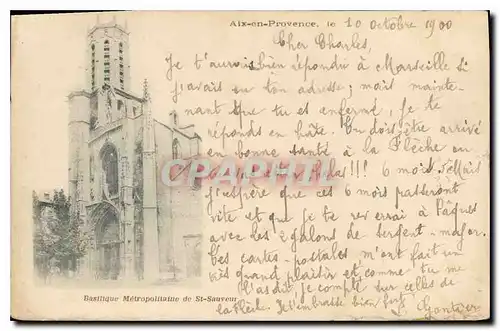 Aix-en-Provence, le 10 octobre 1900
Cher Charles,
Je t'aurais bien répondu à Marseille si
j'avais eu ton adresse; mais mainte-
nant que tu es enfermé, je te
réponds en hâte. Tu dois être arrivé
en bonne santé à la Flèche ou
CPARAMA
!!! 6 mois
j'espère que ces 6 mois passeront
vite et que je te reverrai à Pâques
avec les galons de sergent-major.
Tes cartes-postales m'ont fait un
grand plaisir et comme tu me
l'as dit, je compte sur celles de
la Flèche. Je t'embrasse bien fort,
Basilique Métropolitaine de St-Sauveur